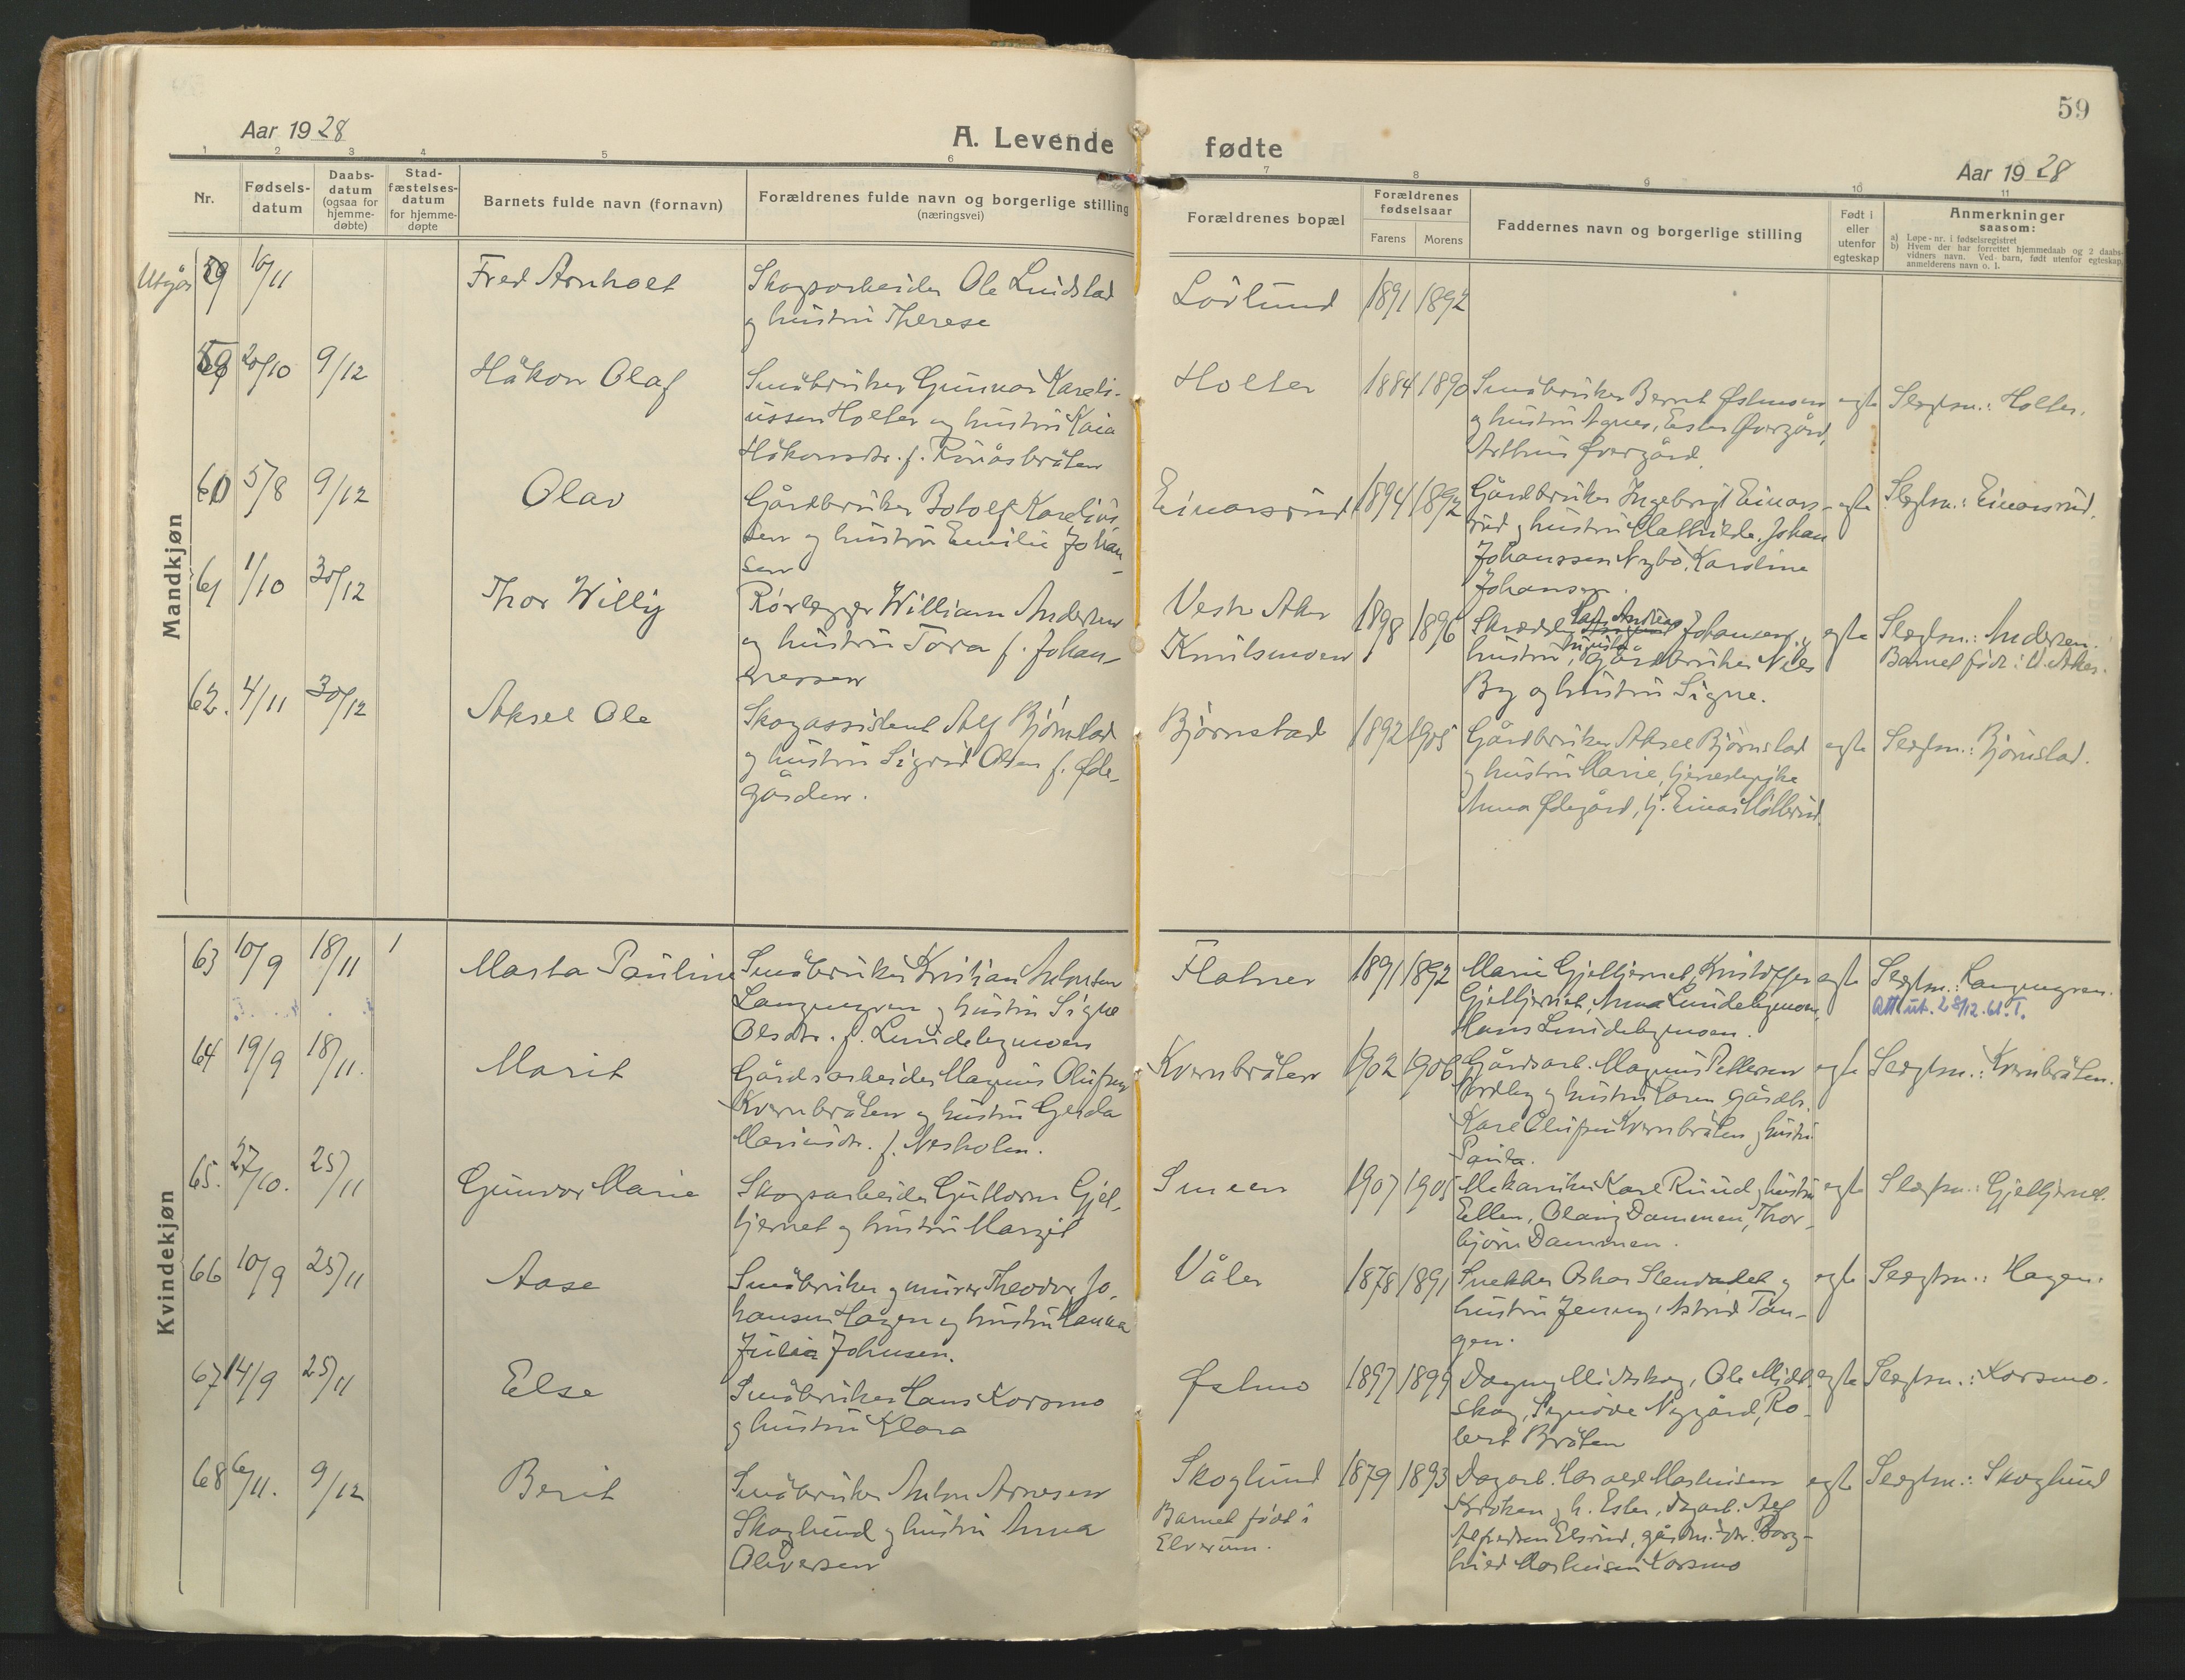 59
Aar 1928
A. Levende fødte
Aar 1928
1 2 3 4 5 6 7 8 9 10 11
Nr.
Fødsels-
datum
Daabs-
datum
(ogsaa for
hjemme-
døbte)
Stad-
fæstelses-
datum
for hjemme-
døpte
Barnets fulde navn (fornavn)
Forældrenes fulde navn og borgerlige stilling
(næringsvei)
Forældrenes bopæl
Forældrenes
fødselsaar
Farens Morens
Faddernes navn og borgerlige stilling
Født i
eller
utenfor
egteskap
Anmerkninger
saasom:
a) Løpe-nr. i fødselsregistret
b) Hvem der har forrettet hjemmedaab og 2 daabs-
vidners navn. Ved barn, født utenfor egteskap,
anmelderens navn o. l.
Mandkjøn
Utgår 59 16/11 Fred Arnholt
Skogsarbeider Ole Lindstad
og hustru Therese
Lörlund 1891 1892
59 20/10 9/12 Håkon Olaf
Småbruker Gunnar Kareli-
ussen Holter og hustru Kaia
Håkonsdtr. f. Rönåsbråten
Holter 1884 1890
Småbruker Bernt Østmoen
og hustru Agnes, Ester Øvergård,
Arthur Øvergård
egte Slegtsn.: Holter.
60 5/8 9/12 Olav
Gårdbruker Botolf Kareliús-
sen og hustru Emilie Johan-
sen
Einarsrud 1894 1892
Gårdbruker Ingebrigt Einars-
rud og hustru Mathilde. Johan
Johanssen Nybo, Karoline
Johansen.
egte Slegtsn.: Einarsrud.
61 1/10 30/12 Thor Willy
Rörlegger William Andersen
og hustru Tora f. Johan-
nessen
Vestre Aker
Knutsmoen
1898 1896
Skredder Johansen og
hustru, Gårdbruker Nils
By og hustru Signe.
egte Slegtsn.: Andersen.
Barnet född i V. Aker.
62. 4/11 30/12 Aksel Ole
Skogassistent Alf Björnstad
og hustru Sigrid Olsen f. Øde-
gården.
Björnstad 1892 1905
Gårdbruker Aksel Björnstad
og hustru Marie, tjenestepike
Anna Ødegård, tj. Einar Möllerud.
egte Slegtsn.: Björnstad.
Kvindekjøn
63 10/9 18/11 1 Marta Pauline
Småbruker Kristian
Langmyren og hustru Signe
Olsdtr. f. Lundebymoen
Flatner 1891 1892
Marie Gjeltjernet, Kristoffer
Gjeltjernet, Anna Lundebymoen,
Hans Lundebymoen.
egte Slegtsn.: Langmyren.
Att ut. 28/12.61. T.
64 19/9 18/11. Marit
Gårdsarbeider Magnus Olufsen
Kvernbråten og hustru Gerda
Mariusdtr. f. Nesholen.
Kvernbråten 1902 1906
Gårdsarb. Magnus Pettersen
Nordby og hustru Karen gårdbr.
Karl Olufsen Kvernbråten og hustru
Paula.
egte Slegtsn.: Kvernbråten.
65. 27/10. 25/11 Gunvor Marie
Skogsarbeider Guttorm Gjel-
tjernet og hustru Margit
Smeen 1907 1905
Mekaniker Karl Ruud og hustru
Ellen, Olaug Dammen, Thor-
björn Dammen.
egte Slegtsn.: Gjeltjernet.
66 10/9 25/11 Aase
Småbruker og murer Theodor Jo-
hansen Hagen og hustru Hanna
Julia Johnsen.
Våler 1878 1891
Snekker Oskar og
hustru Jenny, Astrid Tan-
gen.
egte Slegtsn.: Hagen.
67 14/9 25/11 Else
Småbruker Hans Korsmo
og hustru Klara
Østmo 1897 1899
Dagny Midtskog, Ole Midt-
skog, Synöve Nygård, Ro-
bert Bråten
egte Slegtsn.: Korsmo.
68 6/11. 9/12 Berit
Småbruker Anton Arnesen
Skoglund og hustru Anna
Oliversen
Skoglund
Barnet född i
Elverum.
1879 1893
Dagarb. Harald Mathisen
Kroken og h. Ester, dagarb. Alf
Alfredsen Elsrud, gårdm. dtr. Borg-
hild Mathisen Korsmo
egte Slegtsn.: Skoglund